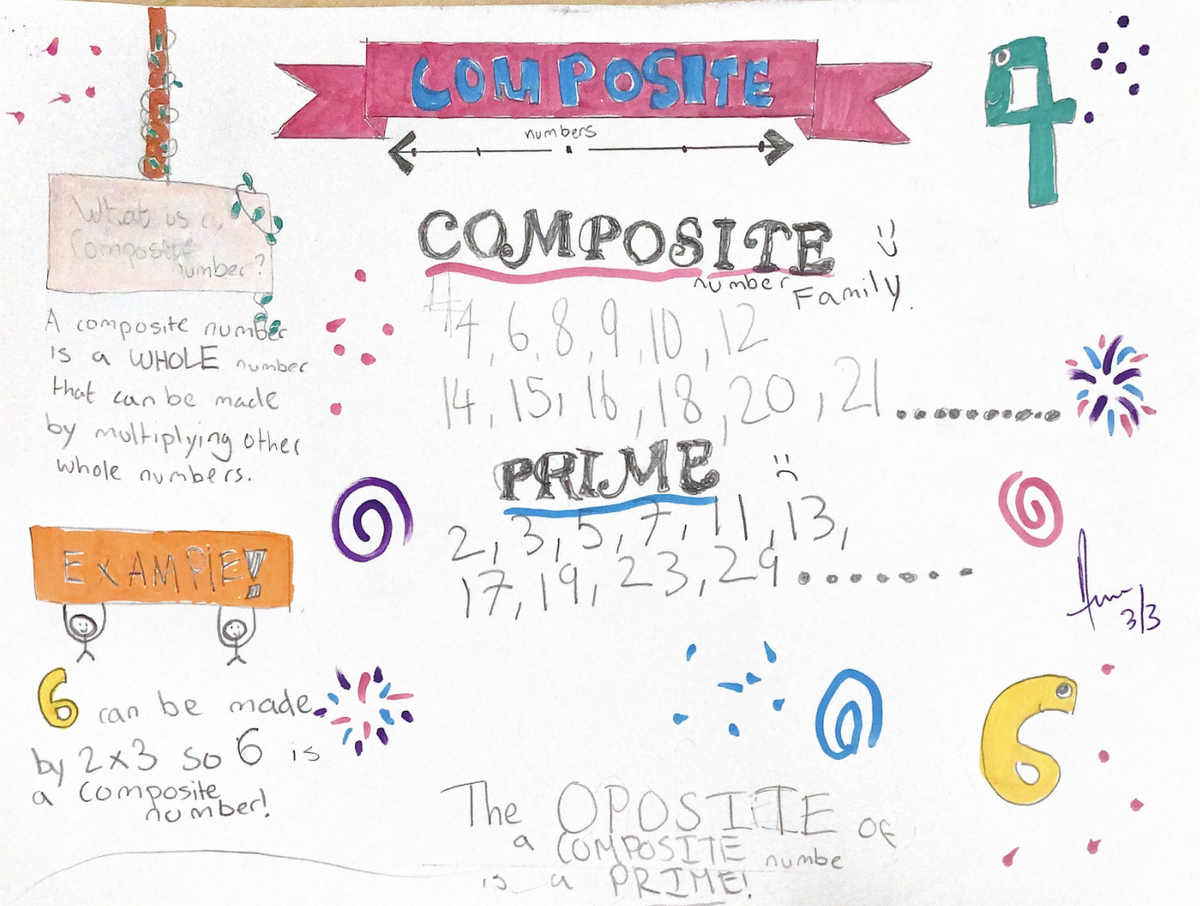 COMPOSITE
numbers
9
What is a
Composite
number?
A composite number
is a WHOLE number
that can be made
by multiplying other
whole numbers.
EXAMPlE!
6 can be made
by 2x3 so 6 is
a composite
number!
COMPOSITE
number Family.
4, 6, 8, 9, 10, 12
14, 15, 16, 18, 20, 21..........
PRIME
2, 3, 5, 7, 11, 13,
17, 19, 23, 29.......
3/3
6
The OPOSITE of
a COMPOSITE numbe
is a PRIME!